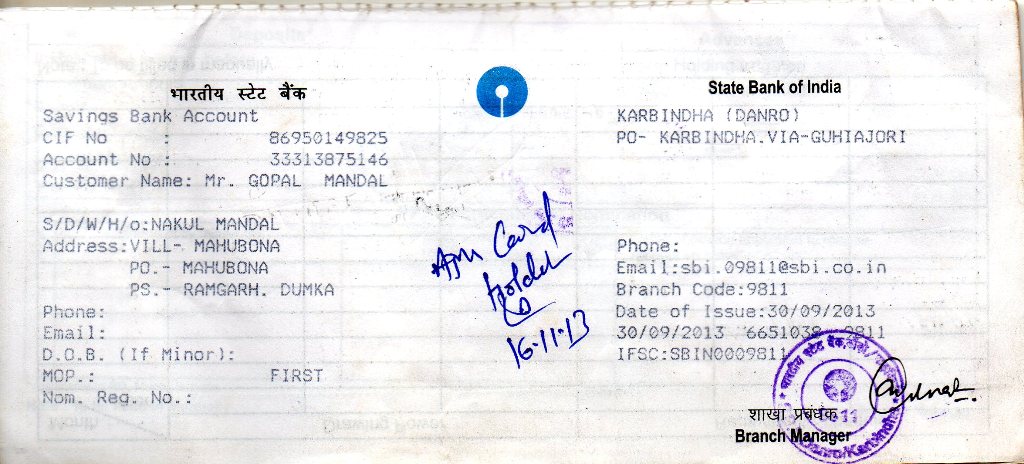 भारतीय स्टेट बैंक
Savings Bank Account
CIF No : 86950149825
Account No : 33313875146
Customer Name: Mr. GOPAL MANDAL
S/D/W/H/o:NAKUL MANDAL
Address:VILL- MAHUBONA
PO.- MAHUBONA
PS.- RAMGARH. DUMKA
Phone:
Email:
D.O.B. (If Minor):
MOP.: FIRST
Nom. Reg. No.:
ATM Card
Holder
16-11-13
State Bank of India
KARBINDHA (DANRO)
PO- KARBINDHA.VIA-GUHIAJORI
Phone:
Email:sbi.09811@sbi.co.in
Branch Code:9811
Date of Issue:30/09/2013
30/09/2013 6651038 9811
IFSC:SBIN0009811
शाखा प्रबंधक
Branch Manager